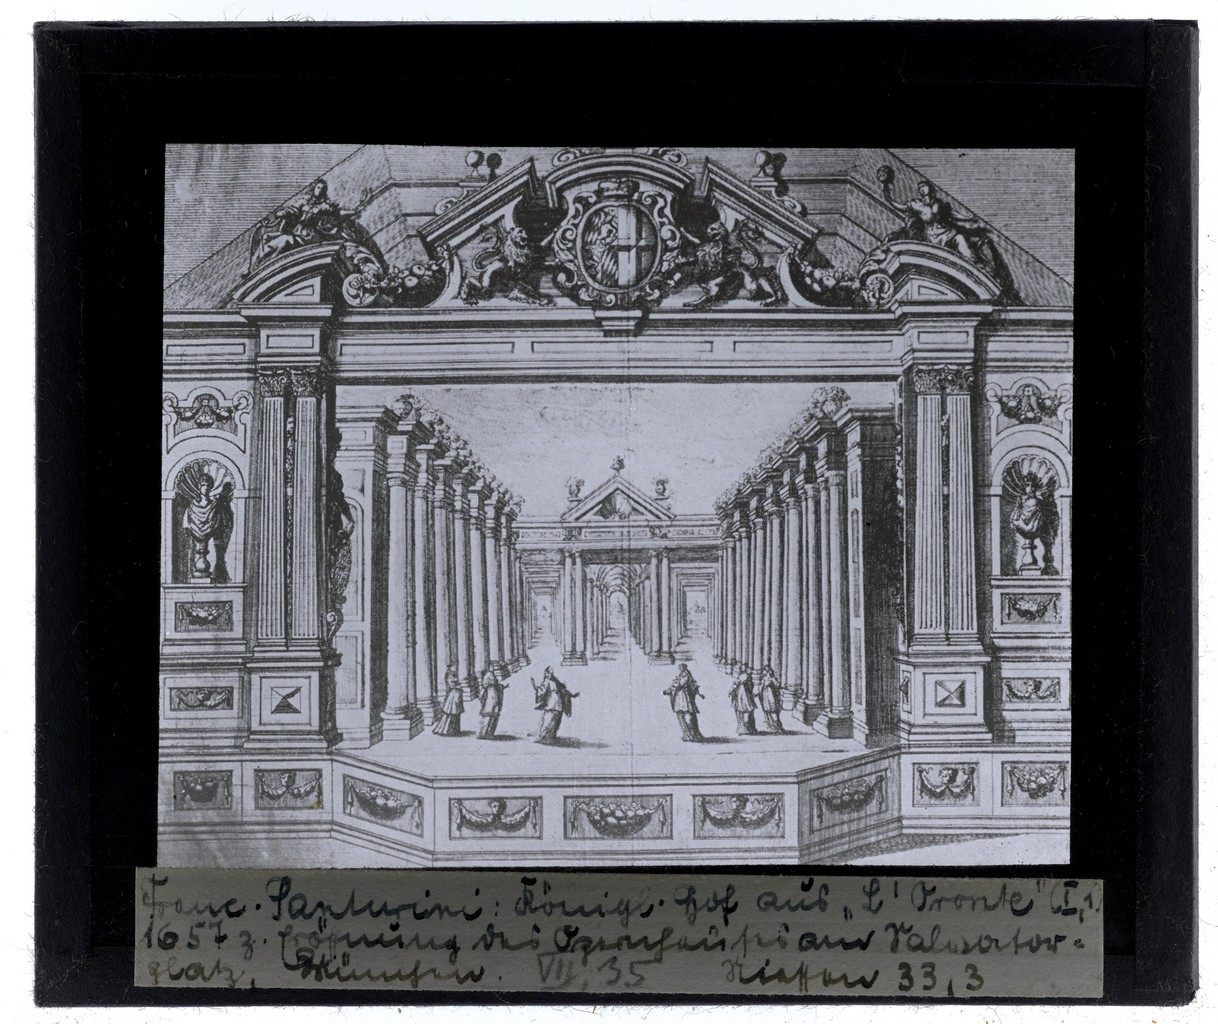 Franc. Santurini: Königl. Hof aus „L'Oronte" (I,1)
1657 z. Eröffnung des Opernhauses am Salvator-
platz, München. VII, 35 Niessen 33,3